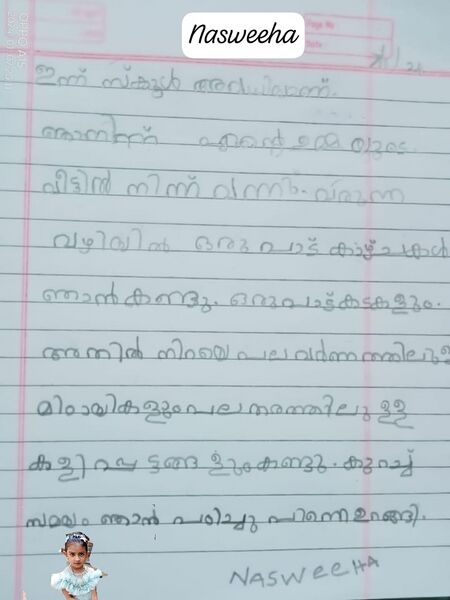 Nasweeha
Page No
Date
ഇന്ന് സ്കൂൾ അവധിയാണ്.
ഞാനിന്ന് എന്റെ ഉമ്മയുടെ
വീട്ടിൽ നിന്ന് വന്നു. വരുന്ന
വഴിയിൽ ഒരുപാട് കാഴ്ചകൾ
ഞാൻ കണ്ടു. ഒരുപാട് കടകളും.
അതിൽ നിറയെ പല വർണ്ണത്തിലുള്ള
മിഠായികളും പല തരത്തിലുള്ള
കളിപ്പാട്ടങ്ങളും കണ്ടു. കുറച്ച്
സമയം ഞാൻ പഠിച്ചു പിന്നെ ഉറങ്ങി.
NASWEEHA